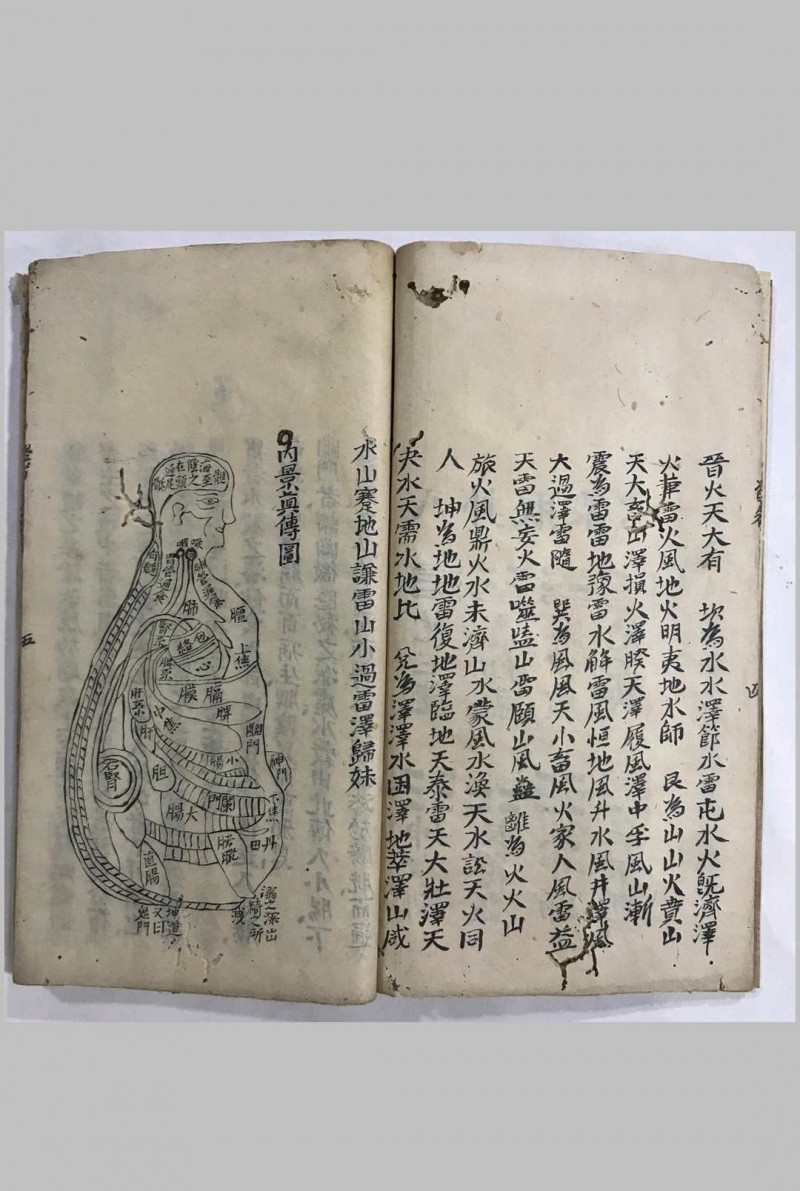 晉火天大有 坎為水水澤節水雷屯水火既濟澤
火革雷火風地火明夷地水師 艮為山山火賁山
天大畜山澤損火澤睽天澤履風澤中孚風山漸
震為雷雷地豫雷水解雷風恒地風升水風井澤風
大過澤雷隨 巽為風風天小畜風火家人風雷益
天雷無妄火雷噬嗑山雷頤山風蠱 離為火火山
旅火風鼎火水未濟山水蒙風水渙天水訟天火同
人 坤為地地雷復地澤臨地天泰雷天大壯澤天
夬水天需水地比 兌為澤澤水困澤地萃澤山咸
四
水山蹇地山謙雷山小過雷澤歸妹
內景真傳圖
髓海
至陰
之在
頭
尾
骶
喉
咽
肺
膻
上焦
包絡
心
腎系
脾系
肝系
膈膜
脾
中焦
幽門
肝
膽
小腸
神門
右腎
闌門
大腸
下焦
丹田
膀胱
直腸
溺之
深出
精之所
洩
地道
又曰
鬼門
五